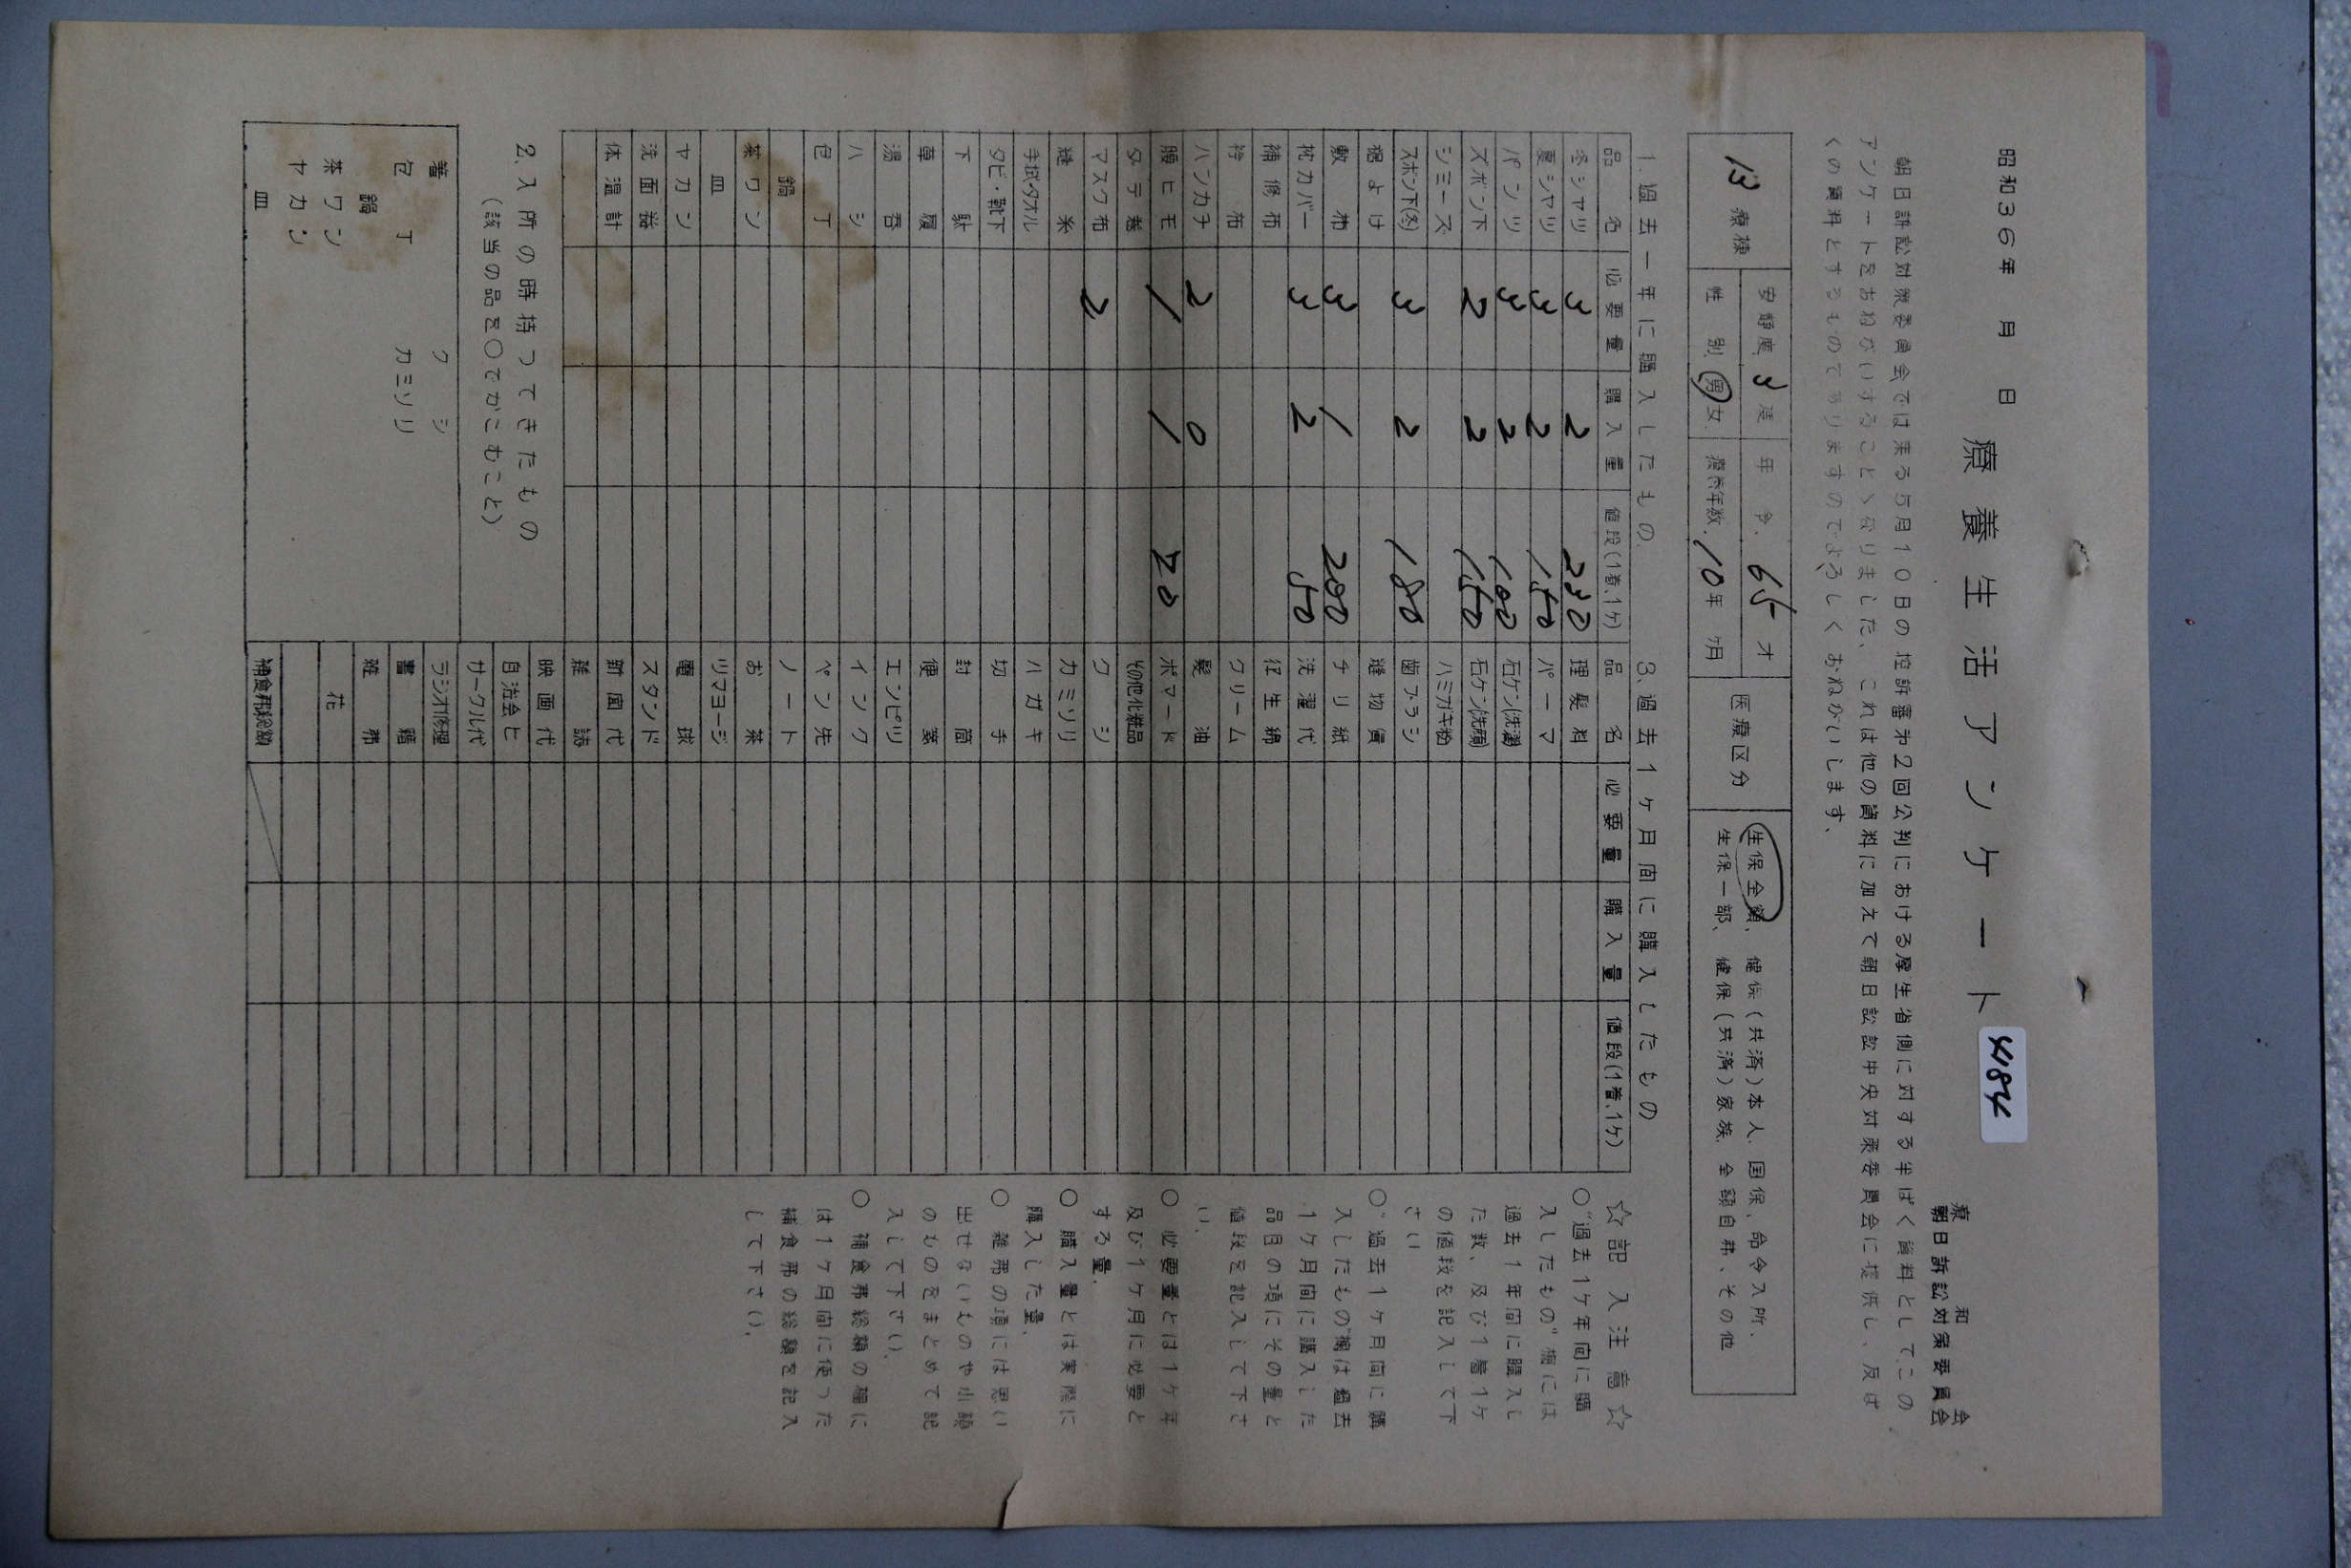 昭和36年　月　日
療養生活アンケート
4184
療和会
朝日訴訟対策委員会
朝日訴訟対策委員会では来る5月10日の控訴審第2回公判における厚生省側に対する半ばく資料としてこの
アンケートをおねがいすることゝなりました、これは他の資料に加えて朝日訴訟中央対策委員会に提供し、反ば
くの資料とするものでありますのでよろしくおねがいします、
13 療棟
安静度 3 度
性別 男 女
年令 65 才
療養年数 10年 ヶ月
医療区分
生保全額、健保(共済)本人、国保、命令入所、
生保一部、健保(共済)家族、全額自弁、その他
1. 過去一年に購入したもの
品名 必要量 購入量 値段(1着、1ケ)
冬シャツ 3 2 230
夏シャツ 3 2 150
パンツ 3 2 100
ズボン下 2 2 150
シミーズ
ズボン下(冬) 3 2 180
裾よけ
敷布 3 1 200
枕カバー 3 2 50
補修布
袴布
ハンカチ 2 0
腰ヒモ 1 1 20
タテ巻
マスク布 2
縫糸
手拭・タオル
タビ・靴下
下駄
草履
湯呑
ハシ
包丁
鍋
茶ワン
皿
ヤカン
洗面器
体温計
2、入所の時持つてきたもの
(該当の品を○でかこむこと)
箸 クシ
包丁 カミソリ
鍋
茶ワン
ヤカン
皿
3、過去1ヶ月間に購入したもの
品名 必要量 購入量 値段(1着、1ケ)
理髪料
パーマ
石ケン(洗濯)
石ケン(洗顔)
ハミガキ粉
歯ブラシ
縫物賃
チリ紙
洗濯代
衛生綿
クリーム
髪油
ポマード
その他化粧品
クシ
カミソリ
ハガキ
切手
封筒
便箋
エンピツ
インク
ペン先
ノート
お茶
ツマヨージ
電球
スタンド
新聞代
雑誌
映画代
自治会ヒ
サークル代
ラジオ修理
書籍
雑弗
花
補食弗総額
☆記入注意☆
○“過去1ヶ年間に購
入したもの”欄には
過去1年間に購入し
た数、及び1着1ケ
の値段を記入して下
さい
○“過去1ヶ月間に購
入したもの”欄は過去
1ヶ月間に購入した
品目の項にその量と
値段を記入して下さ
い、
○必要量とは1ヶ年
及び1ヶ月に必要と
する量、
○購入量とは実際に
購入した量、
○雑弗の項には思い
出せないものや小額
のものをまとめて記
入して下さい、
○補食弗総額の欄に
は1ヶ月間に使った
補食弗の総額を記入
して下さい、